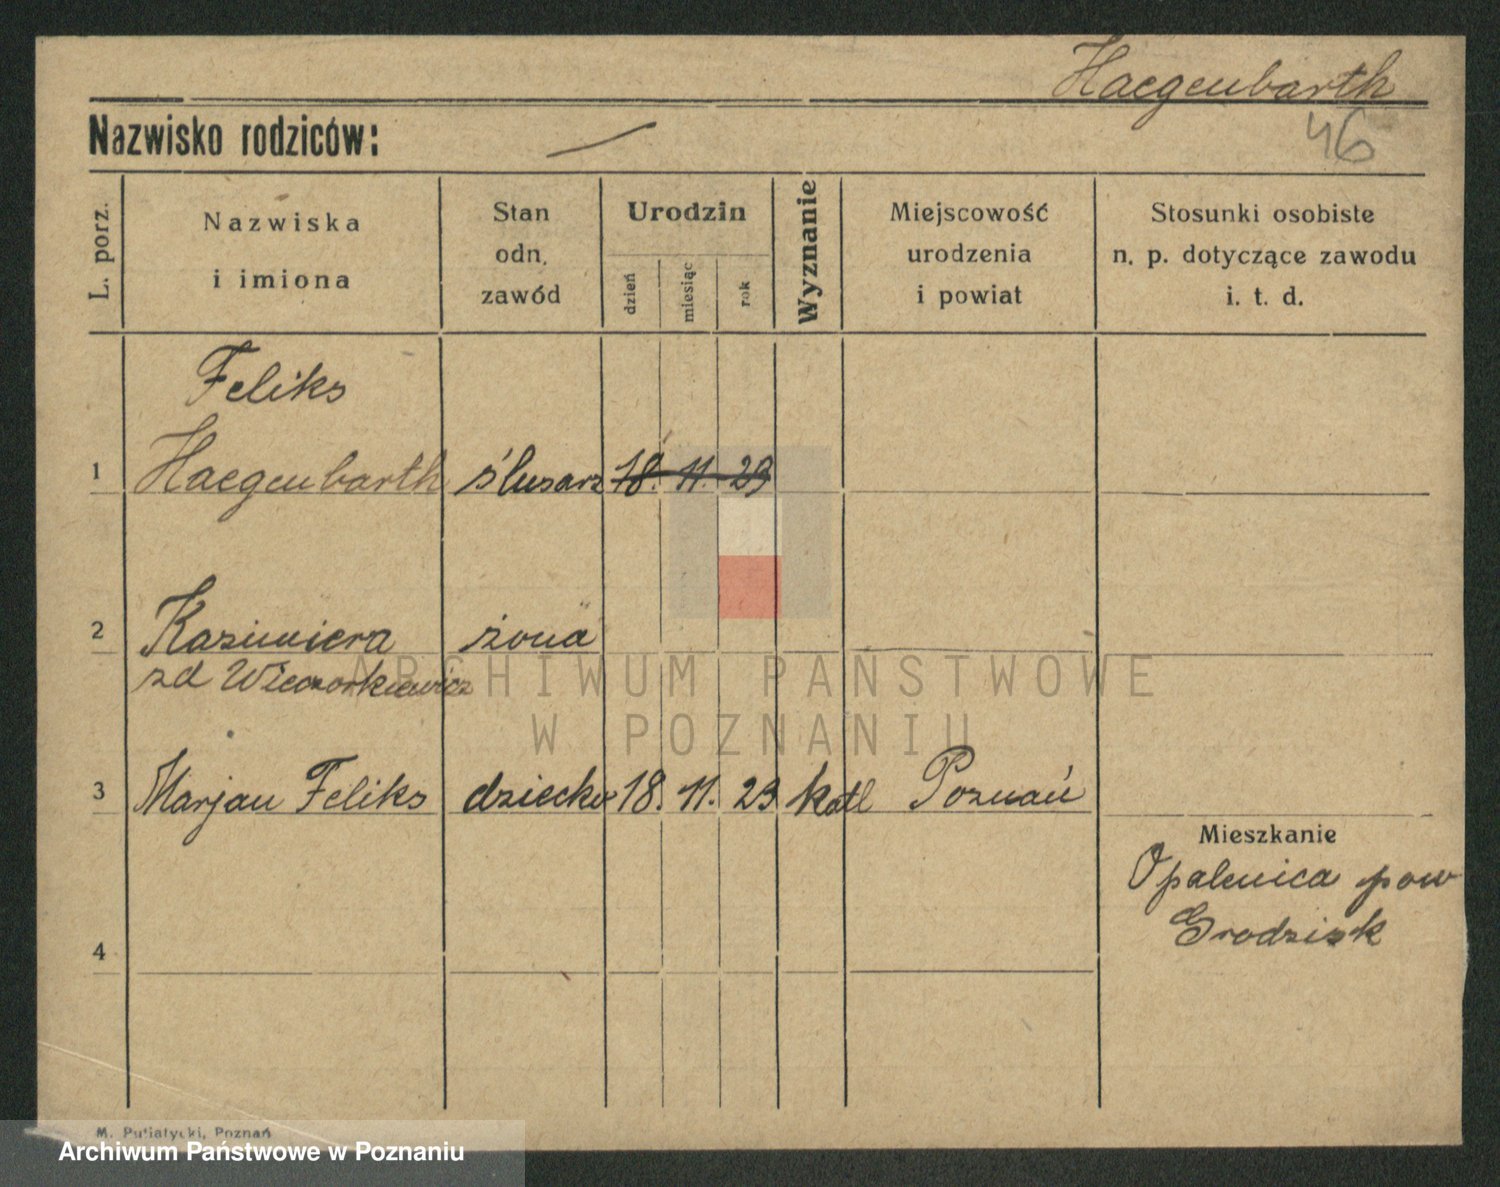 Haegenbarth
Nazwisko rodziców: —
46
L. porz.
Nazwiska
i imiona
Stan
odn.
zawód
Urodzin
dzień
miesiąc
rok
Wyznanie
Miejscowość
urodzenia
i powiat
Stosunki osobiste
n. p. dotyczące zawodu
i. t. d.
Feliks
1 Haegenbarth ślusarz 18. 11. 23
2 Kazimiera żona
zd Wieczorkiewicz
3 Marjan Feliks dziecko 18. 11. 23 katl Poznań
Mieszkanie
Opalenica pow
Grodzisk
4
ARCHIWUM PAŃSTWOWE
W POZNANIU
M. Putiatycki, Poznań
Archiwum Państwowe w Poznaniu